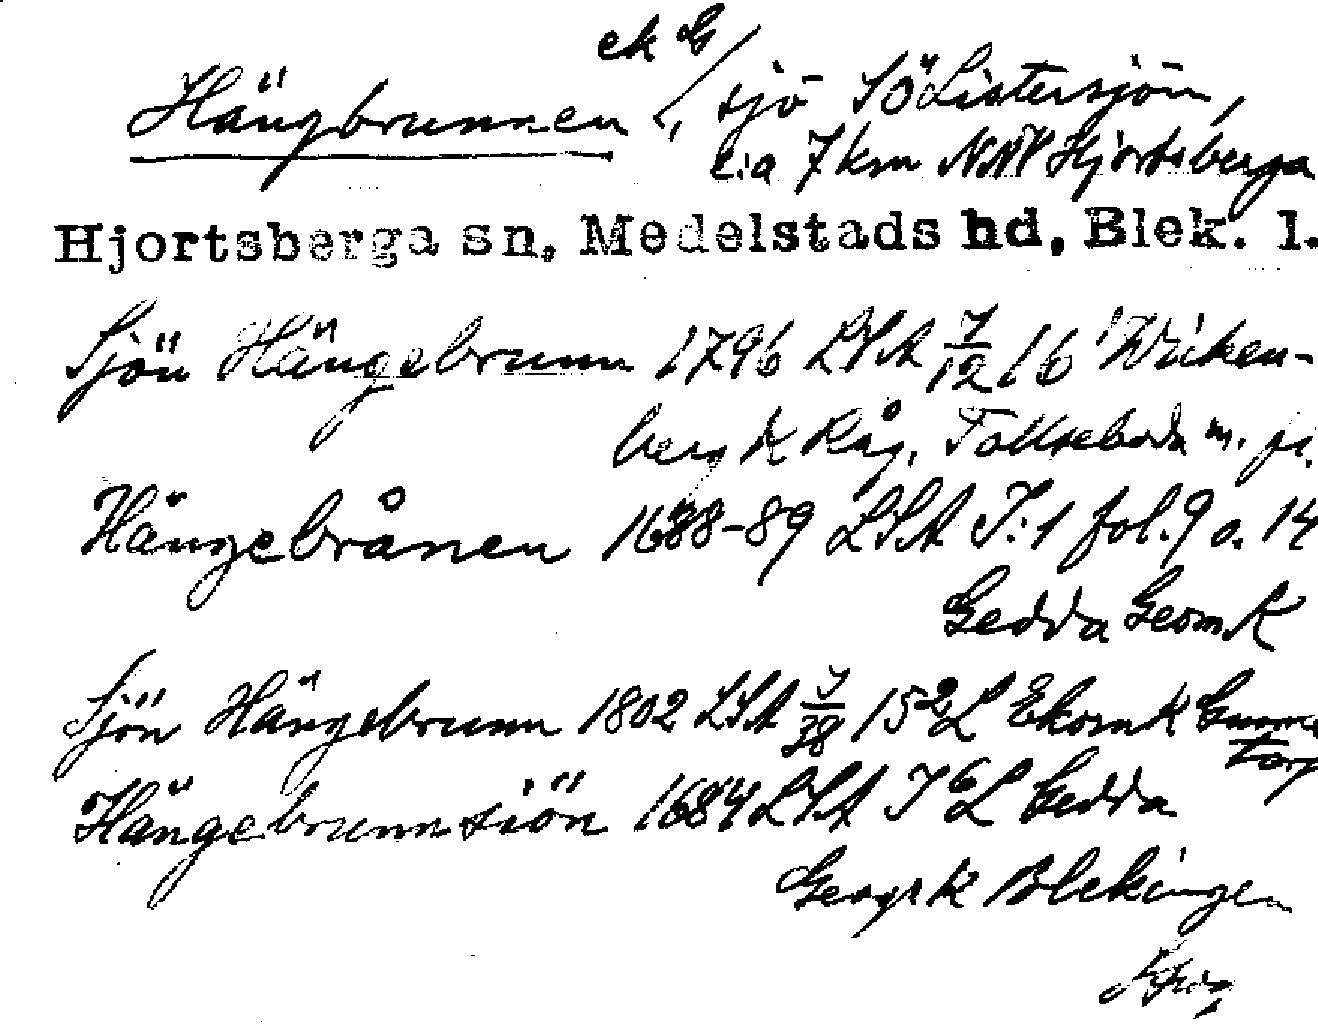 ek G
Hängbrunnen, sjö SÖ Listersjön,
c:a 7 km NNV Hjortsberga
Hjortsberga sn, Medelstads hd, Blek. l.
Sjön Hängebrunn 1796 LSA 7/12 16 Wicken-
berg K Råg, Tolkseboda m. fl.
Hängebrånen 1688-89 LSA I:1 fol. 9 o. 14
Gedda Geom K
Sjön Hängebrunn 1802 LSA 7/38 15 2 L Ekom K
torp
Hängebrunnsiön 1684 LSA I 6 L Gedda
Geogr K Blekingen